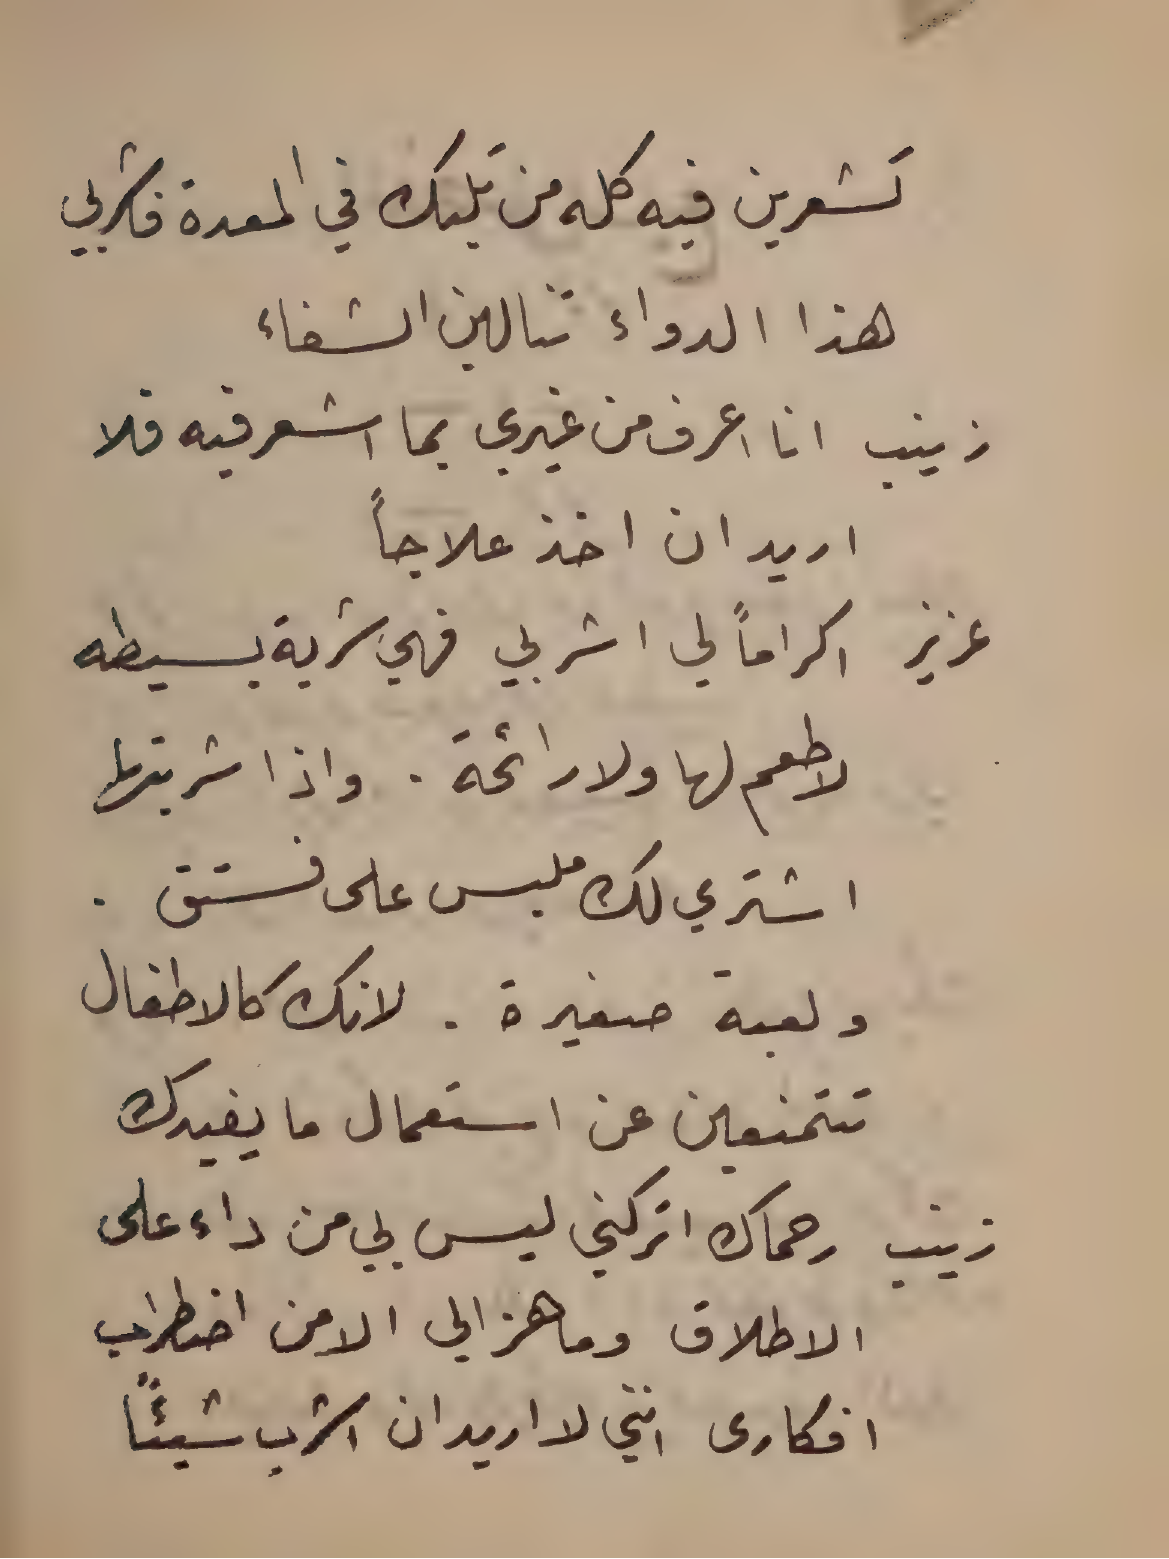 تشعرين فيه كله من تلبك في المعدة فاشربي
هذا الدواء تنالين الشفاء
زينب انا اعرف من غيري بما اشعر فيه فلا
اريد ان اخذ علاجاً
عزيز اكراماً لي اشربي فهي شربة بسيطه
لا طعم لها ولا رائحة . واذا شربتها
اشتري لك ملبس على فستق .
ولعبة صغيرة . لانك كالاطفال
تتمنعين عن استعمال ما يفيدك
زينب رحماك اتركني ليس بي من داء على
الاطلاق وما هزالي الا من اضطراب
افكارى انني لا اريد ان اشرب شيئاً